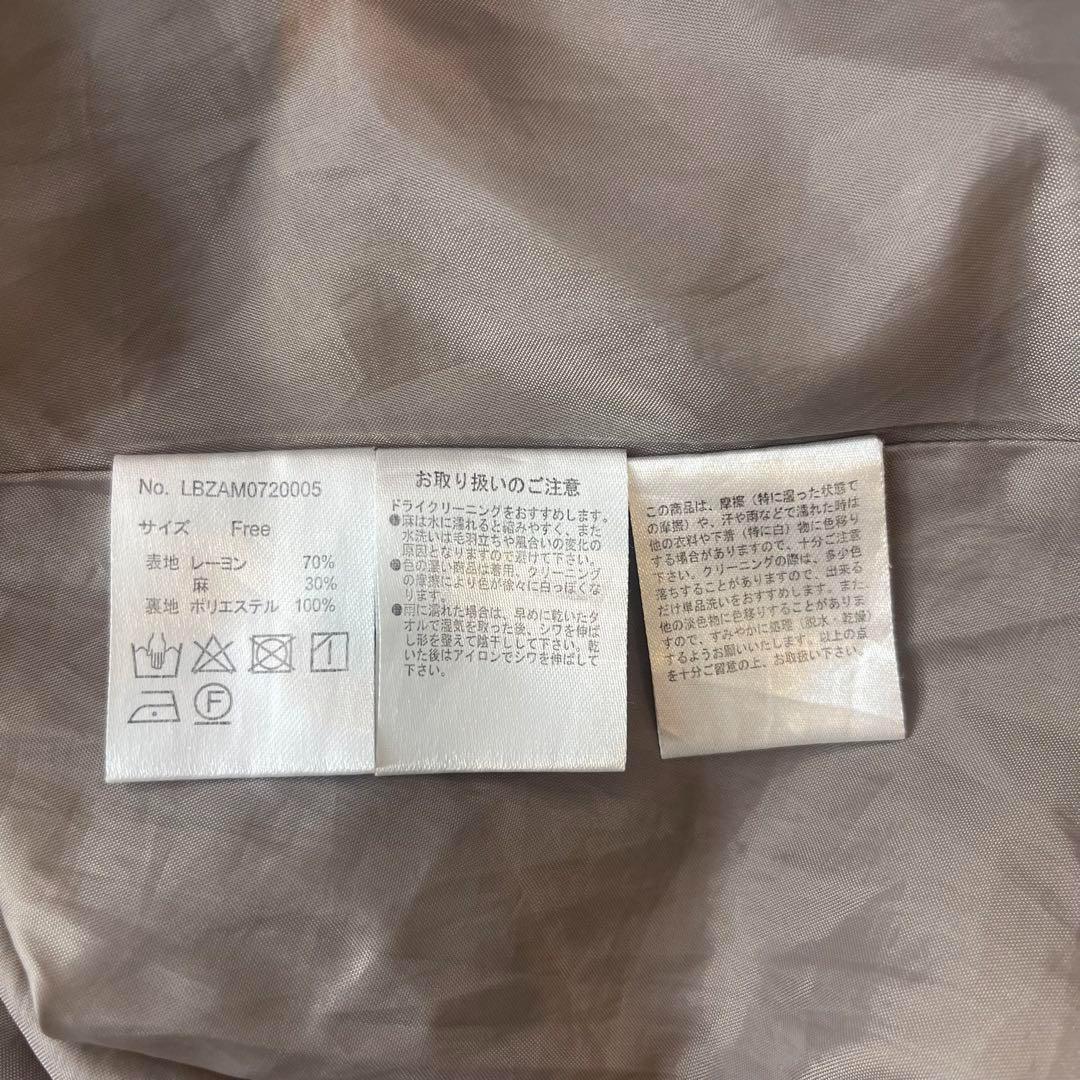 No. LBZAM0720005
サイズ Free
表地 レーヨン 70%
麻 30%
裏地 ポリエステル 100%
F
お取り扱いのご注意
ドライクリーニングをおすすめします。
●麻は水に濡れると縮みやすく、また
水洗いは毛羽立ちや風合いの変化の
原因となりますので避けて下さい。
●色の濃い商品は着用、クリーニング
の摩擦により色が徐々に白っぽくな
ります。
●雨に濡れた場合は、早めに乾いたタ
オルで湿気を取った後、シワを伸ば
し形を整えて陰干しして下さい。乾
いた後はアイロンでシワを伸ばして
下さい。
この商品は、摩擦（特に湿った状態で
の摩擦）や、汗や雨などで濡れた時は
他の衣料や下着（特に白）物に色移り
する場合がありますので、十分ご注意
下さい。クリーニングの際は、多少色
落ちすることがありますので、出来る
だけ単品洗いをおすすめします。また
他の淡色物に色移りすることがありま
すので、すみやかに処理（脱水・乾燥）
するようお願いいたします。以上の点
を十分ご留意の上、お取扱い下さい。